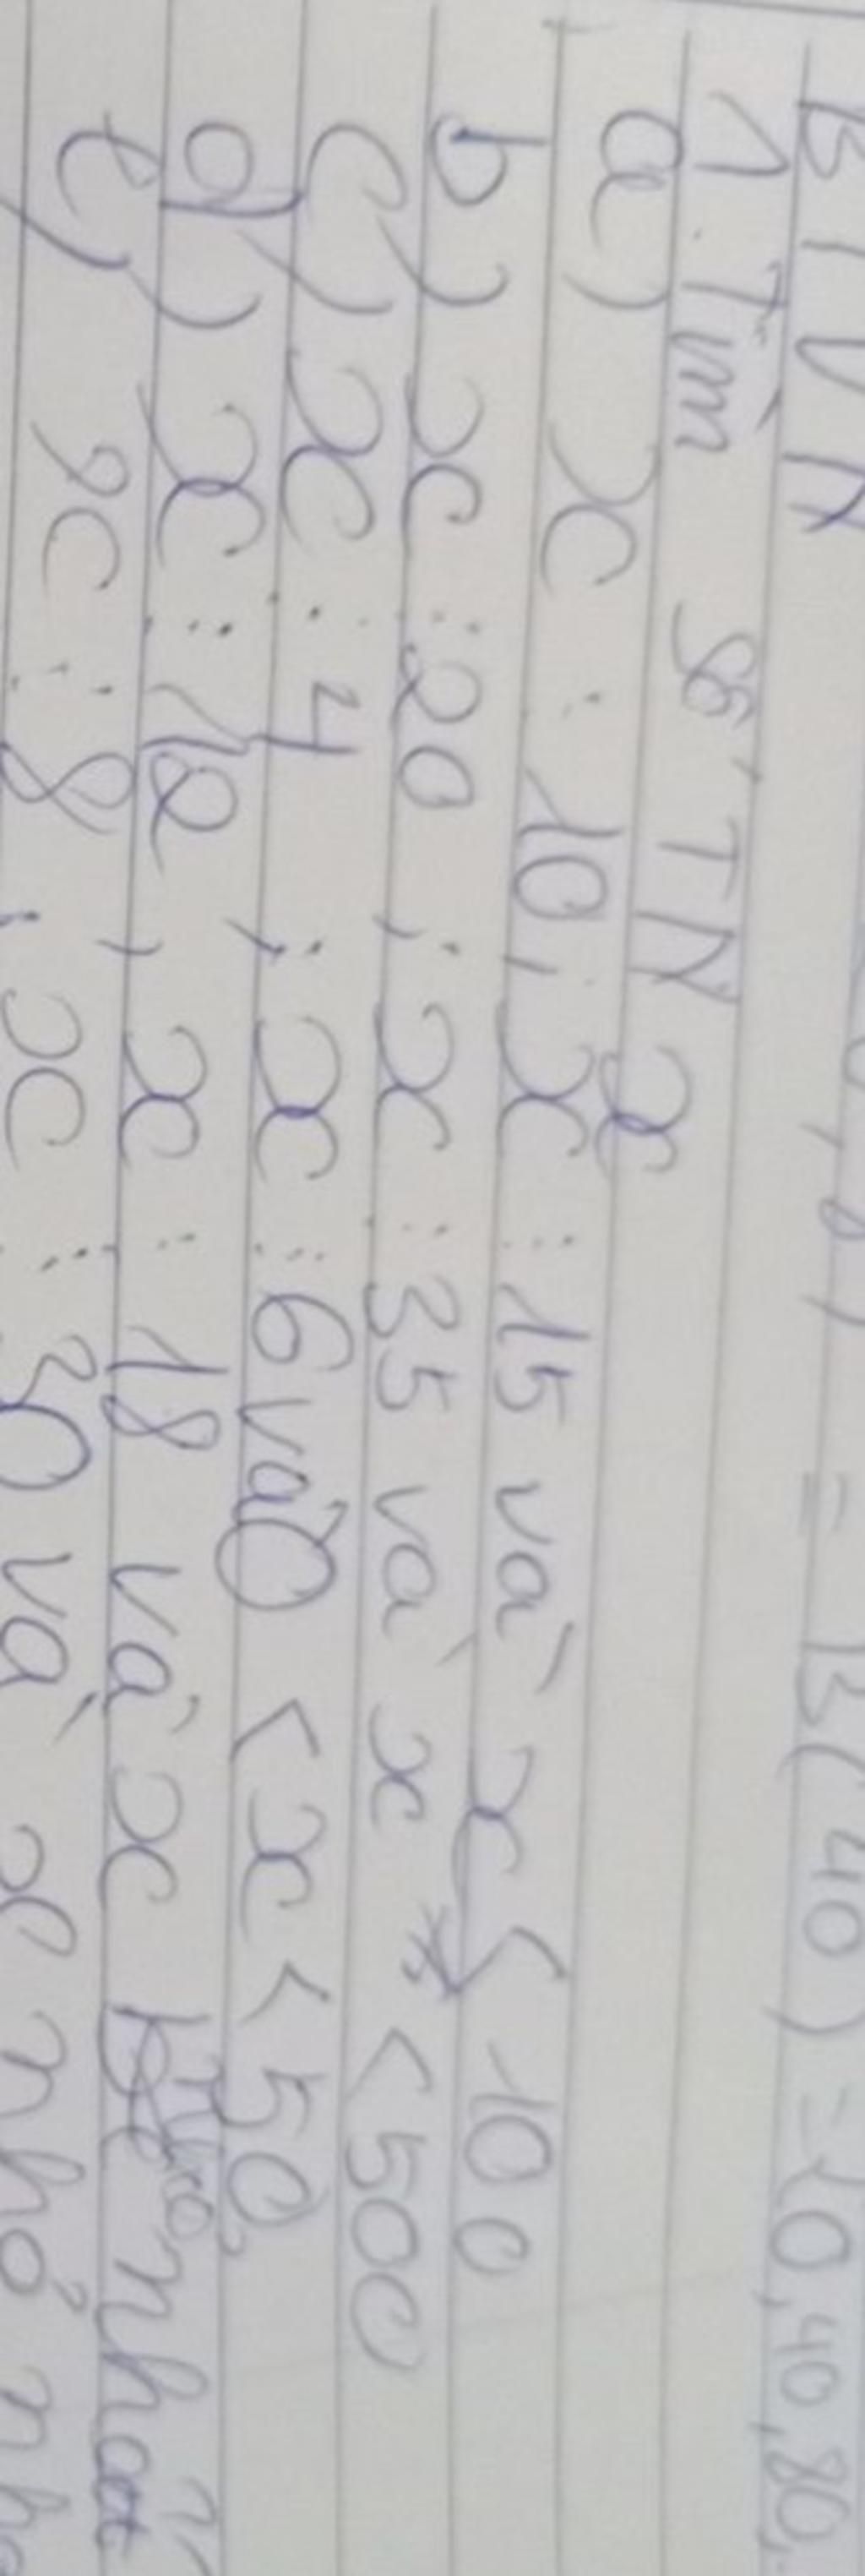 = B(40) = {0,40,80,
BTVN
1. Tìm số TN x
a) x ⋮ 10, x ⋮ 15 và x < 100
b) x ⋮ 20, x ⋮ 35 và x < 500
c) x ⋮ 4, x ⋮ 6 và 0 < x < 50
d) x ⋮ 12, x ⋮ 18 và x nhỏ nhất
e) x ⋮ 8, x ⋮ 30 và x nhỏ